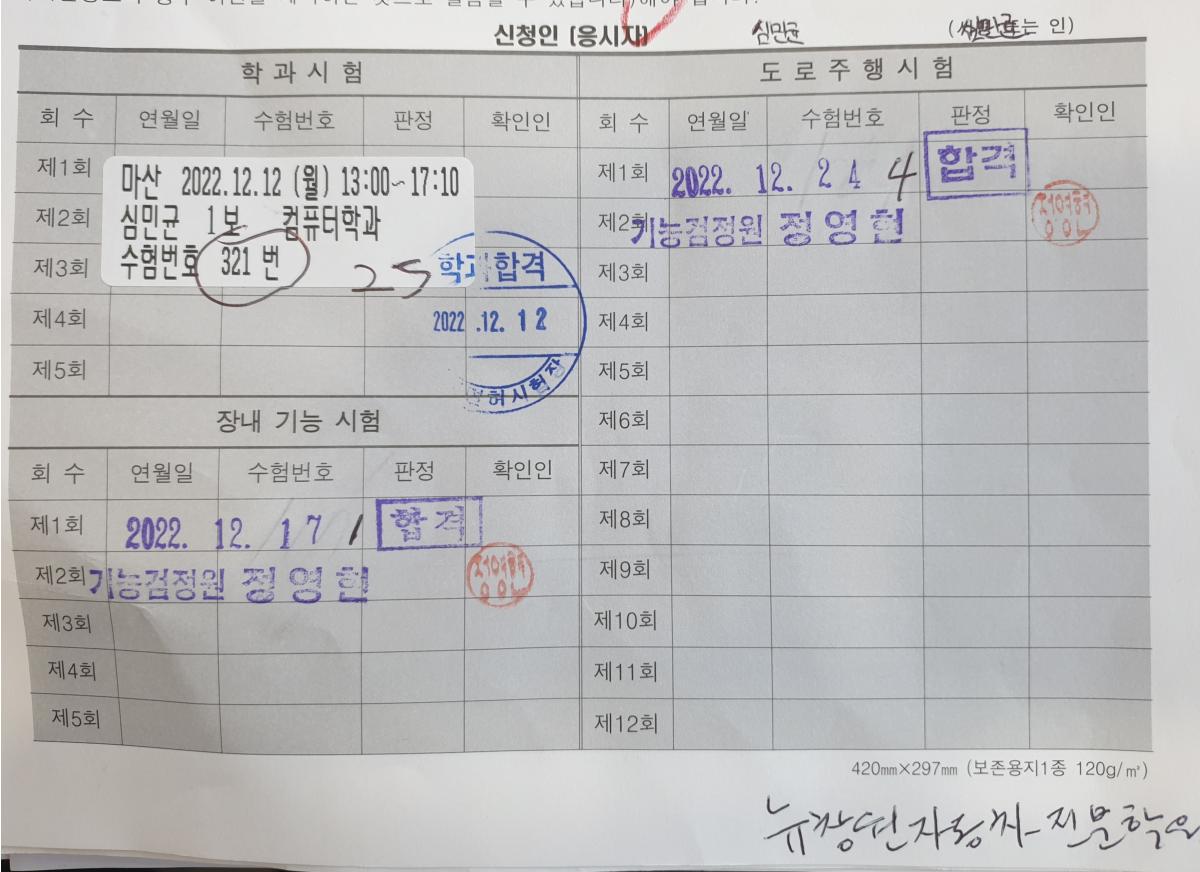 신청인 (응시자) 심민균 (심민균또는 인)
학 과 시 험
회 수 연월일 수험번호 판정 확인인
제1회
마산 2022.12.12 (월) 13:00~17:10
제2회
심민균 1보 컴퓨터학과
제3회
수험번호 321 번
25
학과합격
제4회
2022 .12. 12
제5회
허시험장
장내 기능 시험
회 수 연월일 수험번호 판정 확인인
제1회 2022. 12. 17 1 합격
제2회 기능검정원 정영현
정영현인
제3회
제4회
제5회
도 로 주 행 시 험
회 수 연월일 수험번호 판정 확인인
제1회 2022. 12. 24 4 합격
제2회 기능검정원 정영현
정영현인
제3회
제4회
제5회
제6회
제7회
제8회
제9회
제10회
제11회
제12회
420㎜×297㎜ (보존용지1종 120g/㎡)
뉴창원자동차전문학원